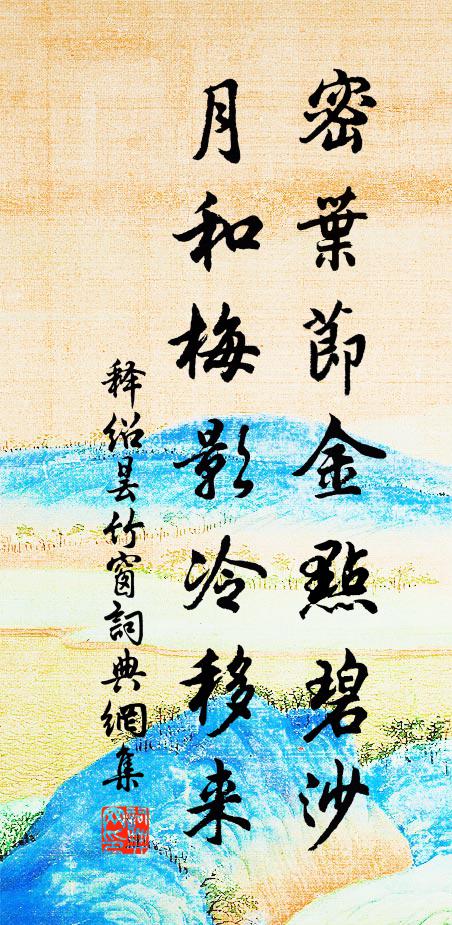 密葉節金點碧沙
月和梅影冷移来
释绍昙竹窗詞典網集